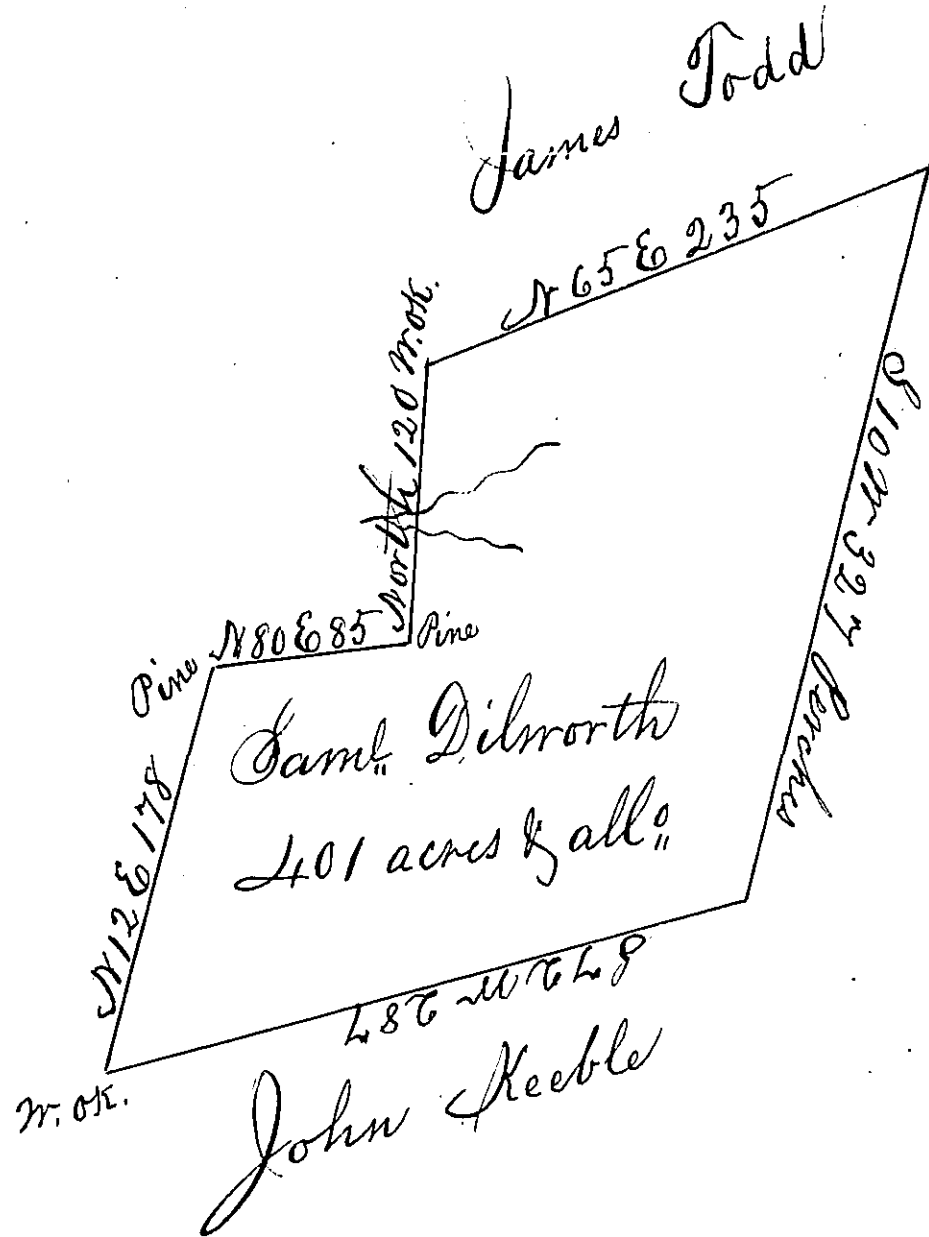 James Todd
N 65 E 235
W. ok.
North 120
S 10 W 327 perches
N 80 E 85
Pine
Pine
Saml. Dilworth
401 acres & allo
N 12 E 178
S 72 W 287
W. ok.
John Keeble